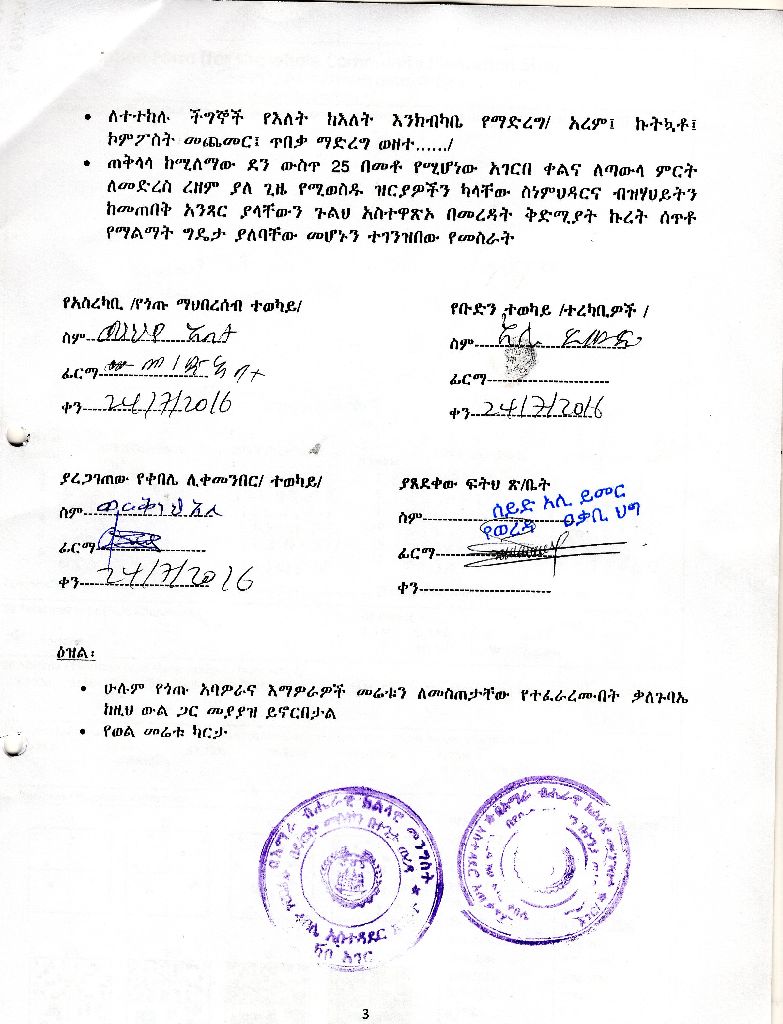 • ለተተከሉ ችግኞች የእለት ከእለት እንክብካቤ የማድረግ/ አረም፤ ኩትኳቶ፤
ኮምፖስት መጨመር፤ ጥበቃ ማድረግ ወዘተ....../
• ጠቅላላ ከሚለማው ደን ውስጥ 25 በመቶ የሚሆነው አገርበ ቀልና ለጣውላ ምርት
ለመድረስ ረዘም ያለ ጊዜ የሚወስዱ ዝርያዎችን ካላቸው ስነምህዳርና ብዝሃህይትን
ከመጠበቅ አንጻር ያላቸውን ጉልህ አስተዋጽኦ በመረዳት ቅድሚያት ኩረት ሰጥቶ
የማልማት ግዴታ ያለባቸው መሆኑን ተገንዝበው የመስራት
የአስረካቢ /የጎጡ ማህበረሰብ ተወካይ/
ስም
ፊርማ
ቀን 24/7/2016
የቡድን ተወካይ /ተረካቢዎች /
ስም
ፊርማ
ቀን 24/7/2016
ያረጋገጠው የቀበሌ ሊቀመንበር/ ተወካይ/
ስም
ፊርማ
ቀን 24/7/2016
ያጸደቀው ፍትህ ጽ/ቤት
ስም ሰይድ አሊ ይመር
የወረዳ ዐቃቢ ህግ
ፊርማ
ቀን
ዕዝል፡
• ሁሉም የጎጡ አባዎራና እማዎራዎች መሬቱን ለመስጠታቸው የተፈራረሙበት ቃለጉባኤ
ከዚህ ውል ጋር መያያዝ ይኖርበታል
• የወል መሬቱ ካርታ
በአማራ ብሔራዊ ክልላዊ መንግስት
3